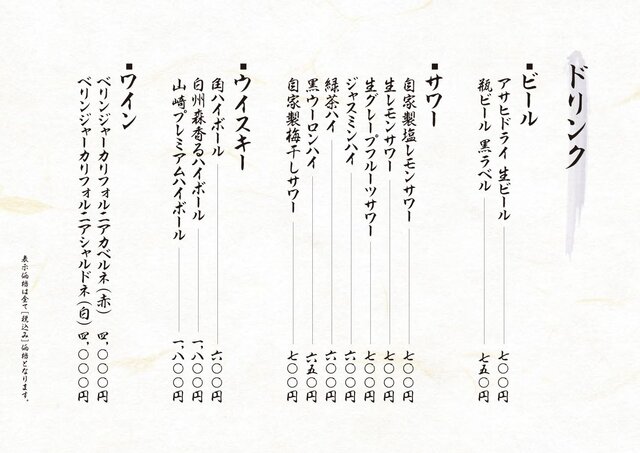 ドリンク
■ビール
アサヒドライ 生ビール 七〇〇円
瓶ビール 黒ラベル 七五〇円
■サワー
自家製塩レモンサワー 七〇〇円
生レモンサワー 七〇〇円
生グレープフルーツサワー 七〇〇円
ジャスミンハイ 六〇〇円
緑茶ハイ 六〇〇円
黒ウーロンハイ 六五〇円
自家製梅干しサワー 七〇〇円
■ウイスキー
角ハイボール 六〇〇円
白州森香るハイボール 一,八〇〇円
山崎プレミアムハイボール 一,八〇〇円
■ワイン
ベリンジャーカリフォルニアカベルネ(赤) 四,〇〇〇円
ベリンジャーカリフォルニアシャルドネ(白) 四,〇〇〇円
表示価格は全て[税込み]価格となります。